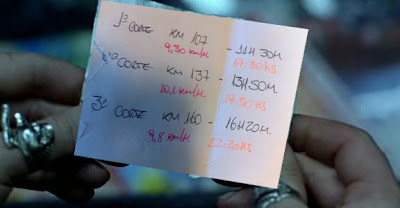 1º CORTE KM 107 - 11H30M
9,30 km/H 17:30 hs
2º CORTE KM 137 - 13H50M
10,1 km/H 19:50 hs
3º CORTE KM 160 - 16H20M
9,8 km/H 22:20 hs